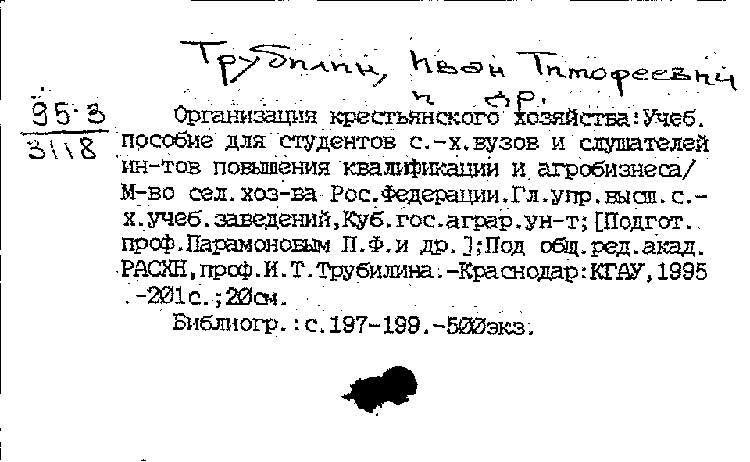 Трубилин, Иван Тимофеевич
и др.
95-3
3118
Организация крестьянского хозяйства:Учеб.
пособие для студентов с.-х.вузов и слушателей
ин-тов повышения квалификации и агробизнеса/
М-во сел.хоз-ва Рос.Федерации.Гл.упр.высш.с.-
х.учеб.заведений,Куб.гос.аграр.ун-т;[Подгот.
проф.Парамоновым П.Ф.и др.];Под общ.ред.акад.
РАСХН,проф.И.Т.Трубилина.-Краснодар:КГАУ,1995
.-201с.;20см.
Библиогр.:с.197-199.-500экз.